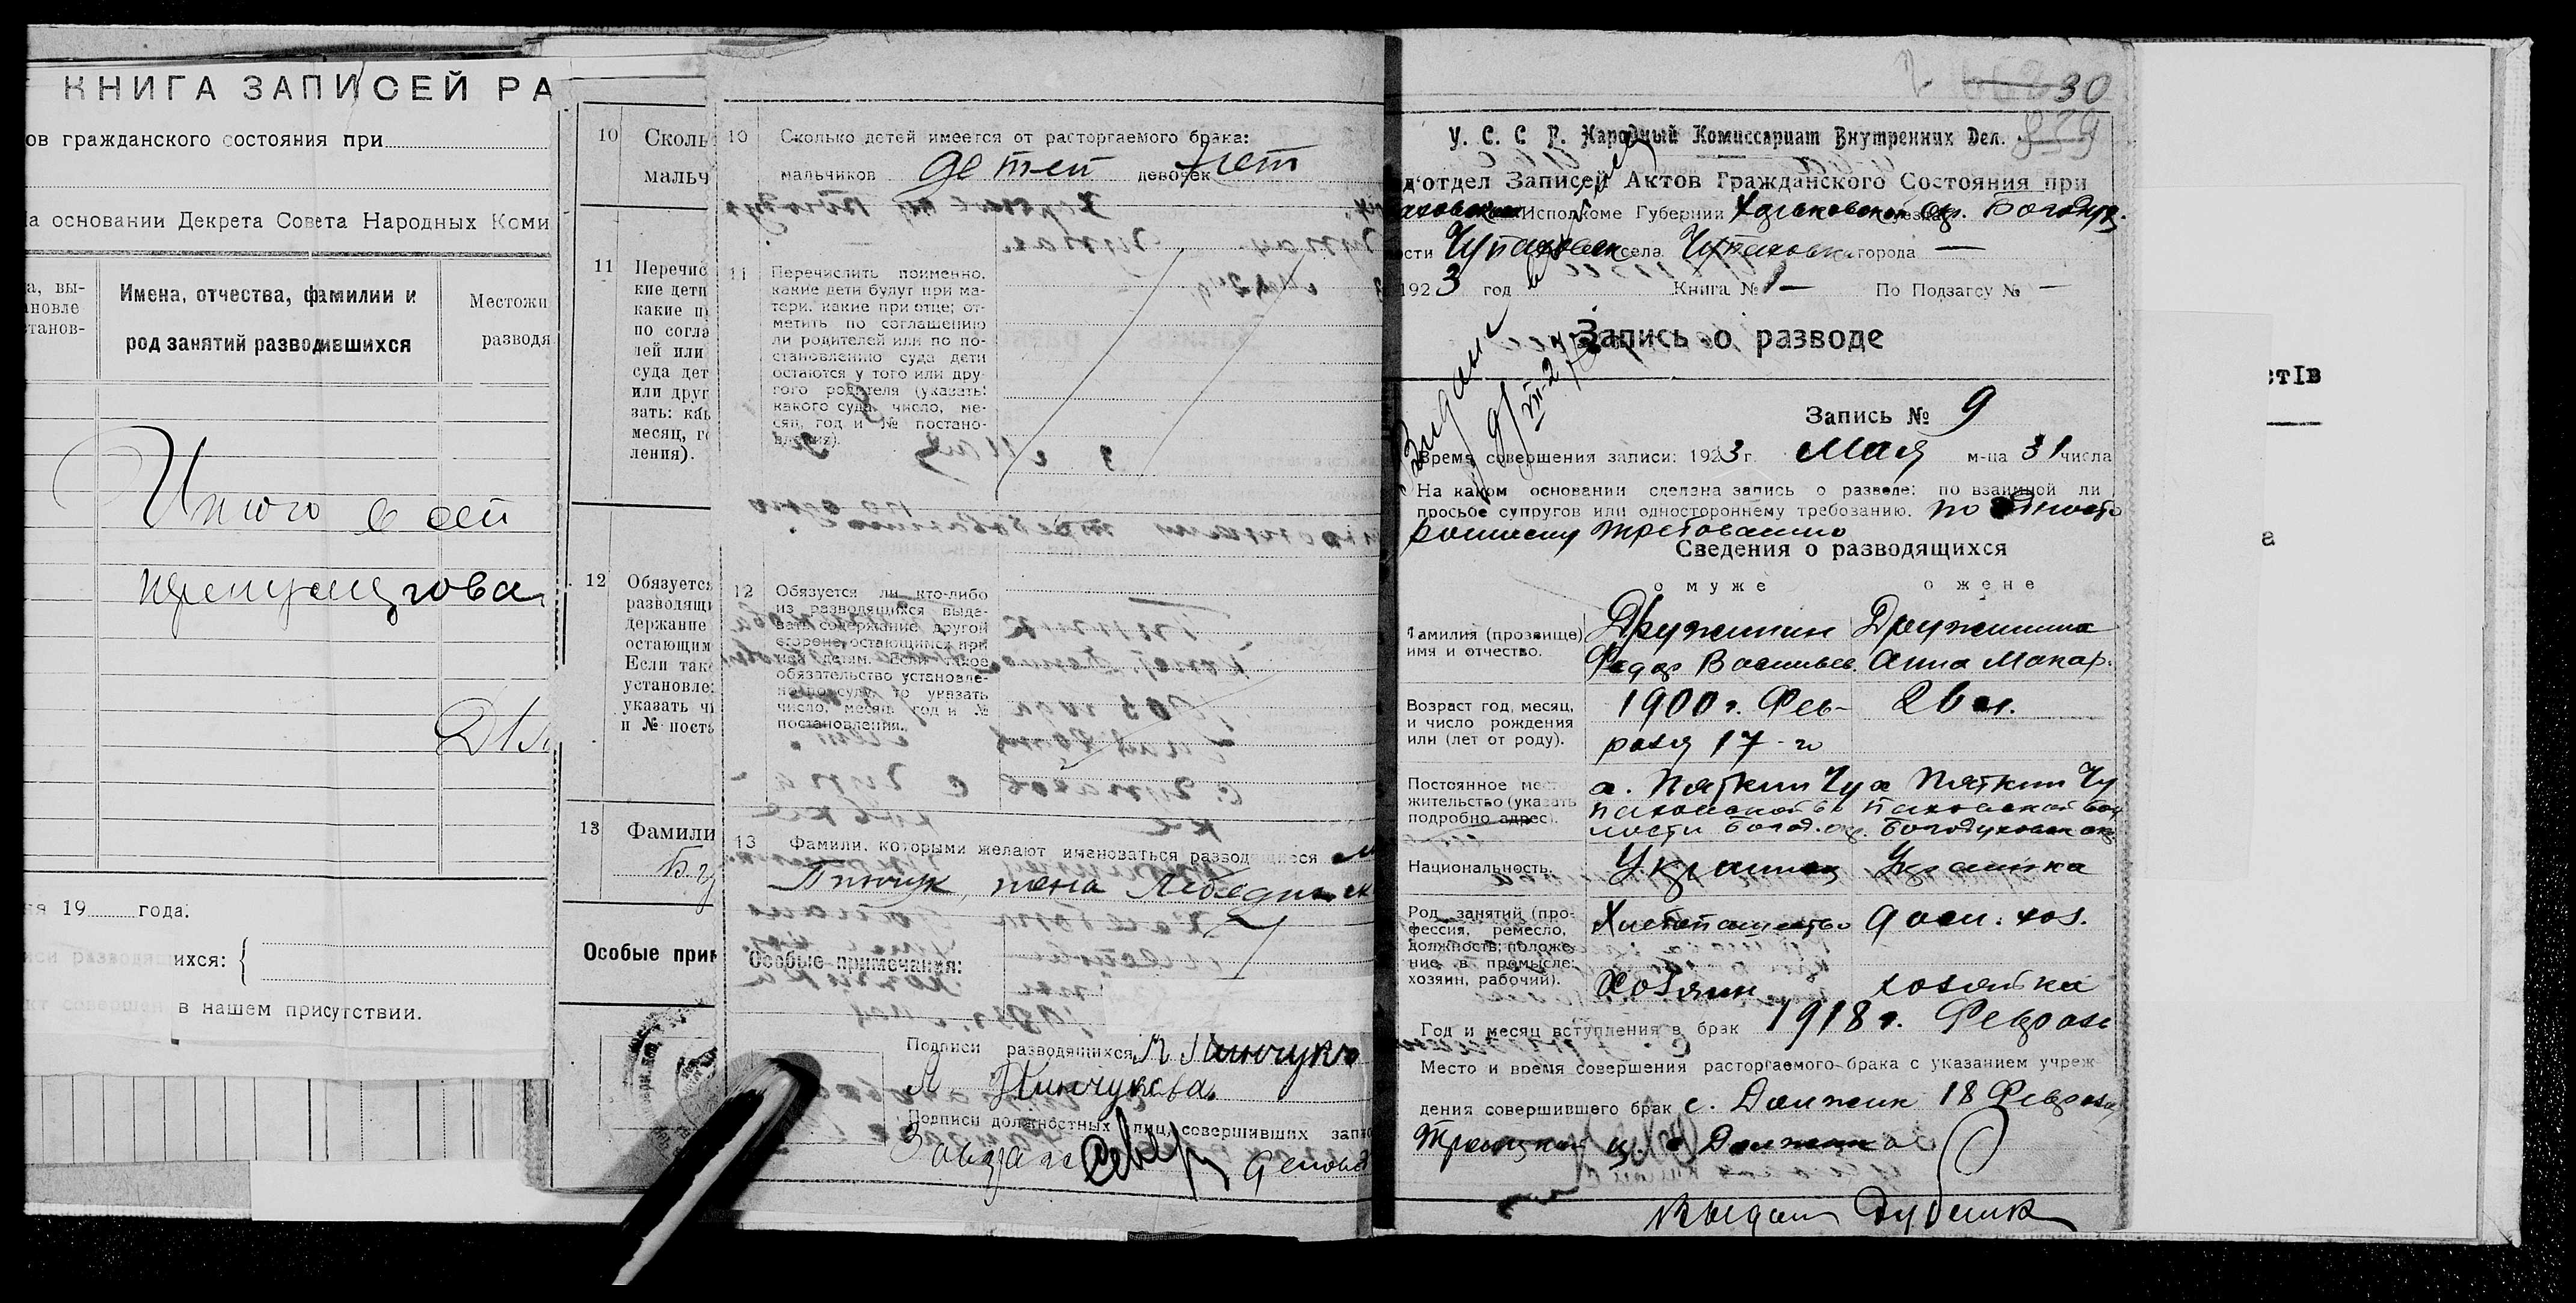 КНИГА ЗАПИСЕЙ РА
ов гражданского состояния при
а основании Декрета Совета Народных Коми
а, вы-
ановле
станов-
Имена, отчества, фамилии и
род занятий разводившихся
Местожи
разводя
Итого в сей
пронумерова
я 19 года.
иси разводящ ихся:
кт совершен в нашем присутствии.
10 Сколь
мальч
11 Перечис
кие дети
какие пр
по согла
лей или
суда дет
или друг
зать: как
месяц, го
ления).
12 Обязуется
разводящи
держание
остающим
Если так
установле
указать чи
и № поста
13 Фамили
Особые прим
10 Сколько детей имеется от расторгаемого брака:
мальчиков детей девочек нет
11 Перечислить поименно,
какие дети будут при ма-
тери, какие при отце; от-
метить по соглашению
ли родителей или по по-
становлению суда дети
остаются у того или дру-
гого родителя (указать:
какого суда, число, ме-
сяц, год и № постано-
вления).
12 Обязуется ли кто-либо
из разводящихся выда-
вать содержание другой
стороне, остающимся при
ней детям. Если такое
обязательство установле-
но по суду, то указать
число, месяц, год и №
постановления.
13 Фамили, которыми желают именоваться разводящиеся
Пинчук, жена Лебедин
Особые примечания:
Подписи разводящихся Пинчук
Пинчукова
Подписи должностных лиц, совершивших запис
Завзагс
30
859
У. С. С. Р. Народный Комиссариат Внутренних Дел.
д'отдел Записей Актов Гражданского Состояния при
Исполкоме Губернии Харьковской Богодух.
ости Чупаховск села Чупаховка города —
1923 год Книга № 1 — По Подзагсу № —
Запись о разводе
Запись № 9
Время совершения записи: 1923 г. Мая м-ца 31 числа
На каком основании сделана запись о разводе: по взаимной ли
просьбе супругов или одностороннему требованию. по односто
роннему требованию
Сведения о разводящихся
о муже о жене
Фамилия (прозвище) Дружинин Дружинина
имя и отчество. Федор Васильев. Анна Макар.
Возраст год, месяц, 1900 г. Фев- 26 л.
и число рождения
или (лет от роду). раля 17-го
Постоянное место х. Пяткин Чу х Пяткин Чу
жительство (указать паховской во паховской вол
подробно адрес). лости Богод. ок. Богодуховск ок
Национальность. Украинец Украинка
Род занятий (про- Хлебопашество дом. хоз.
фессия, ремесло,
должность; положе-
ние в промысле:
хозяин, рабочий). хозяин хозяйка
Год и месяц вступления в брак 1918 г. Феврал
Место и время совершения расторгаемого брака с указанием учреж
дения совершившего брак с. Должик 18 Феврала
Троицкой ц. с Должик
стів
а